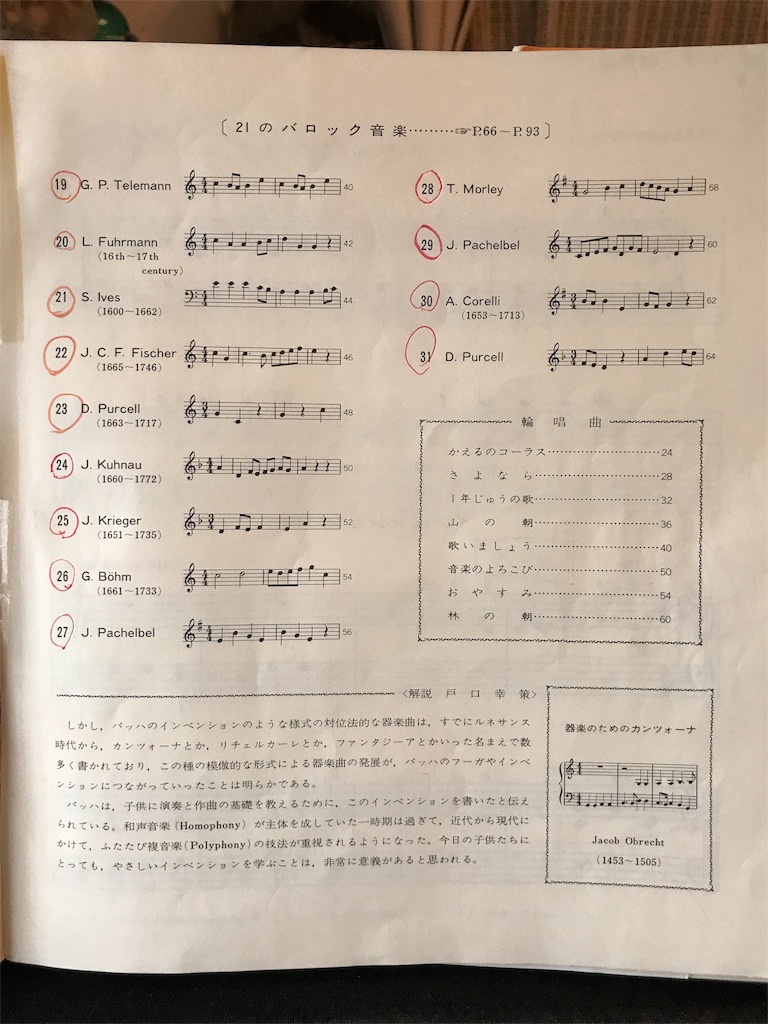 〔 21 の バ ロ ッ ク 音 楽 ………☞P.66～P. 93 〕
19 G. P. Telemann 40
20 L. Fuhrmann 42
(16th～17th
century)
21 S. Ives 44
(1600～1662)
22 J. C. F. Fischer 46
(1665～1746)
23 D. Purcell 48
(1663～1717)
24 J. Kuhnau 50
(1660～1772)
25 J. Krieger 52
(1651～1735)
26 G. Böhm 54
(1661～1733)
27 J. Pachelbel 56
28 T. Morley 58
29 J. Pachelbel 60
30 A. Corelli 62
(1653～1713)
31 D. Purcell 64
輪 唱 曲
かえるのコーラス……………………24
さ よ な ら……………………28
1年じゅうの歌……………………32
山 の 朝……………………36
歌いましょう……………………40
音楽のよろこび……………………50
お や す み……………………54
林 の 朝……………………60
〈解説 戸 口 幸 策〉
しかし，バッハのインベンションのような様式の対位法的な器楽曲は，すでにルネサンス
時代から，カンツォーナとか，リチェルカーレとか，ファンタジーアとかいった名まえで数
多く書かれており，この種の模倣的な形式による器楽曲の発展が，バッハのフーガやインベ
ンションにつながっていったことは明らかである。
バッハは，子供に演奏と作曲の基礎を教えるために，このインベンションを書いたと伝え
られている。和声音楽(Homophony) が主体を成していた一時期は過ぎて，近代から現代に
かけて，ふたたび複音楽(Polyphony)の技法が重視されるようになった。今日の子供たちに
とっても，やさしいインベンションを学ぶことは，非常に意義があると思われる。
器楽のためのカンツォーナ
Jacob Obrecht
(1453～1505)